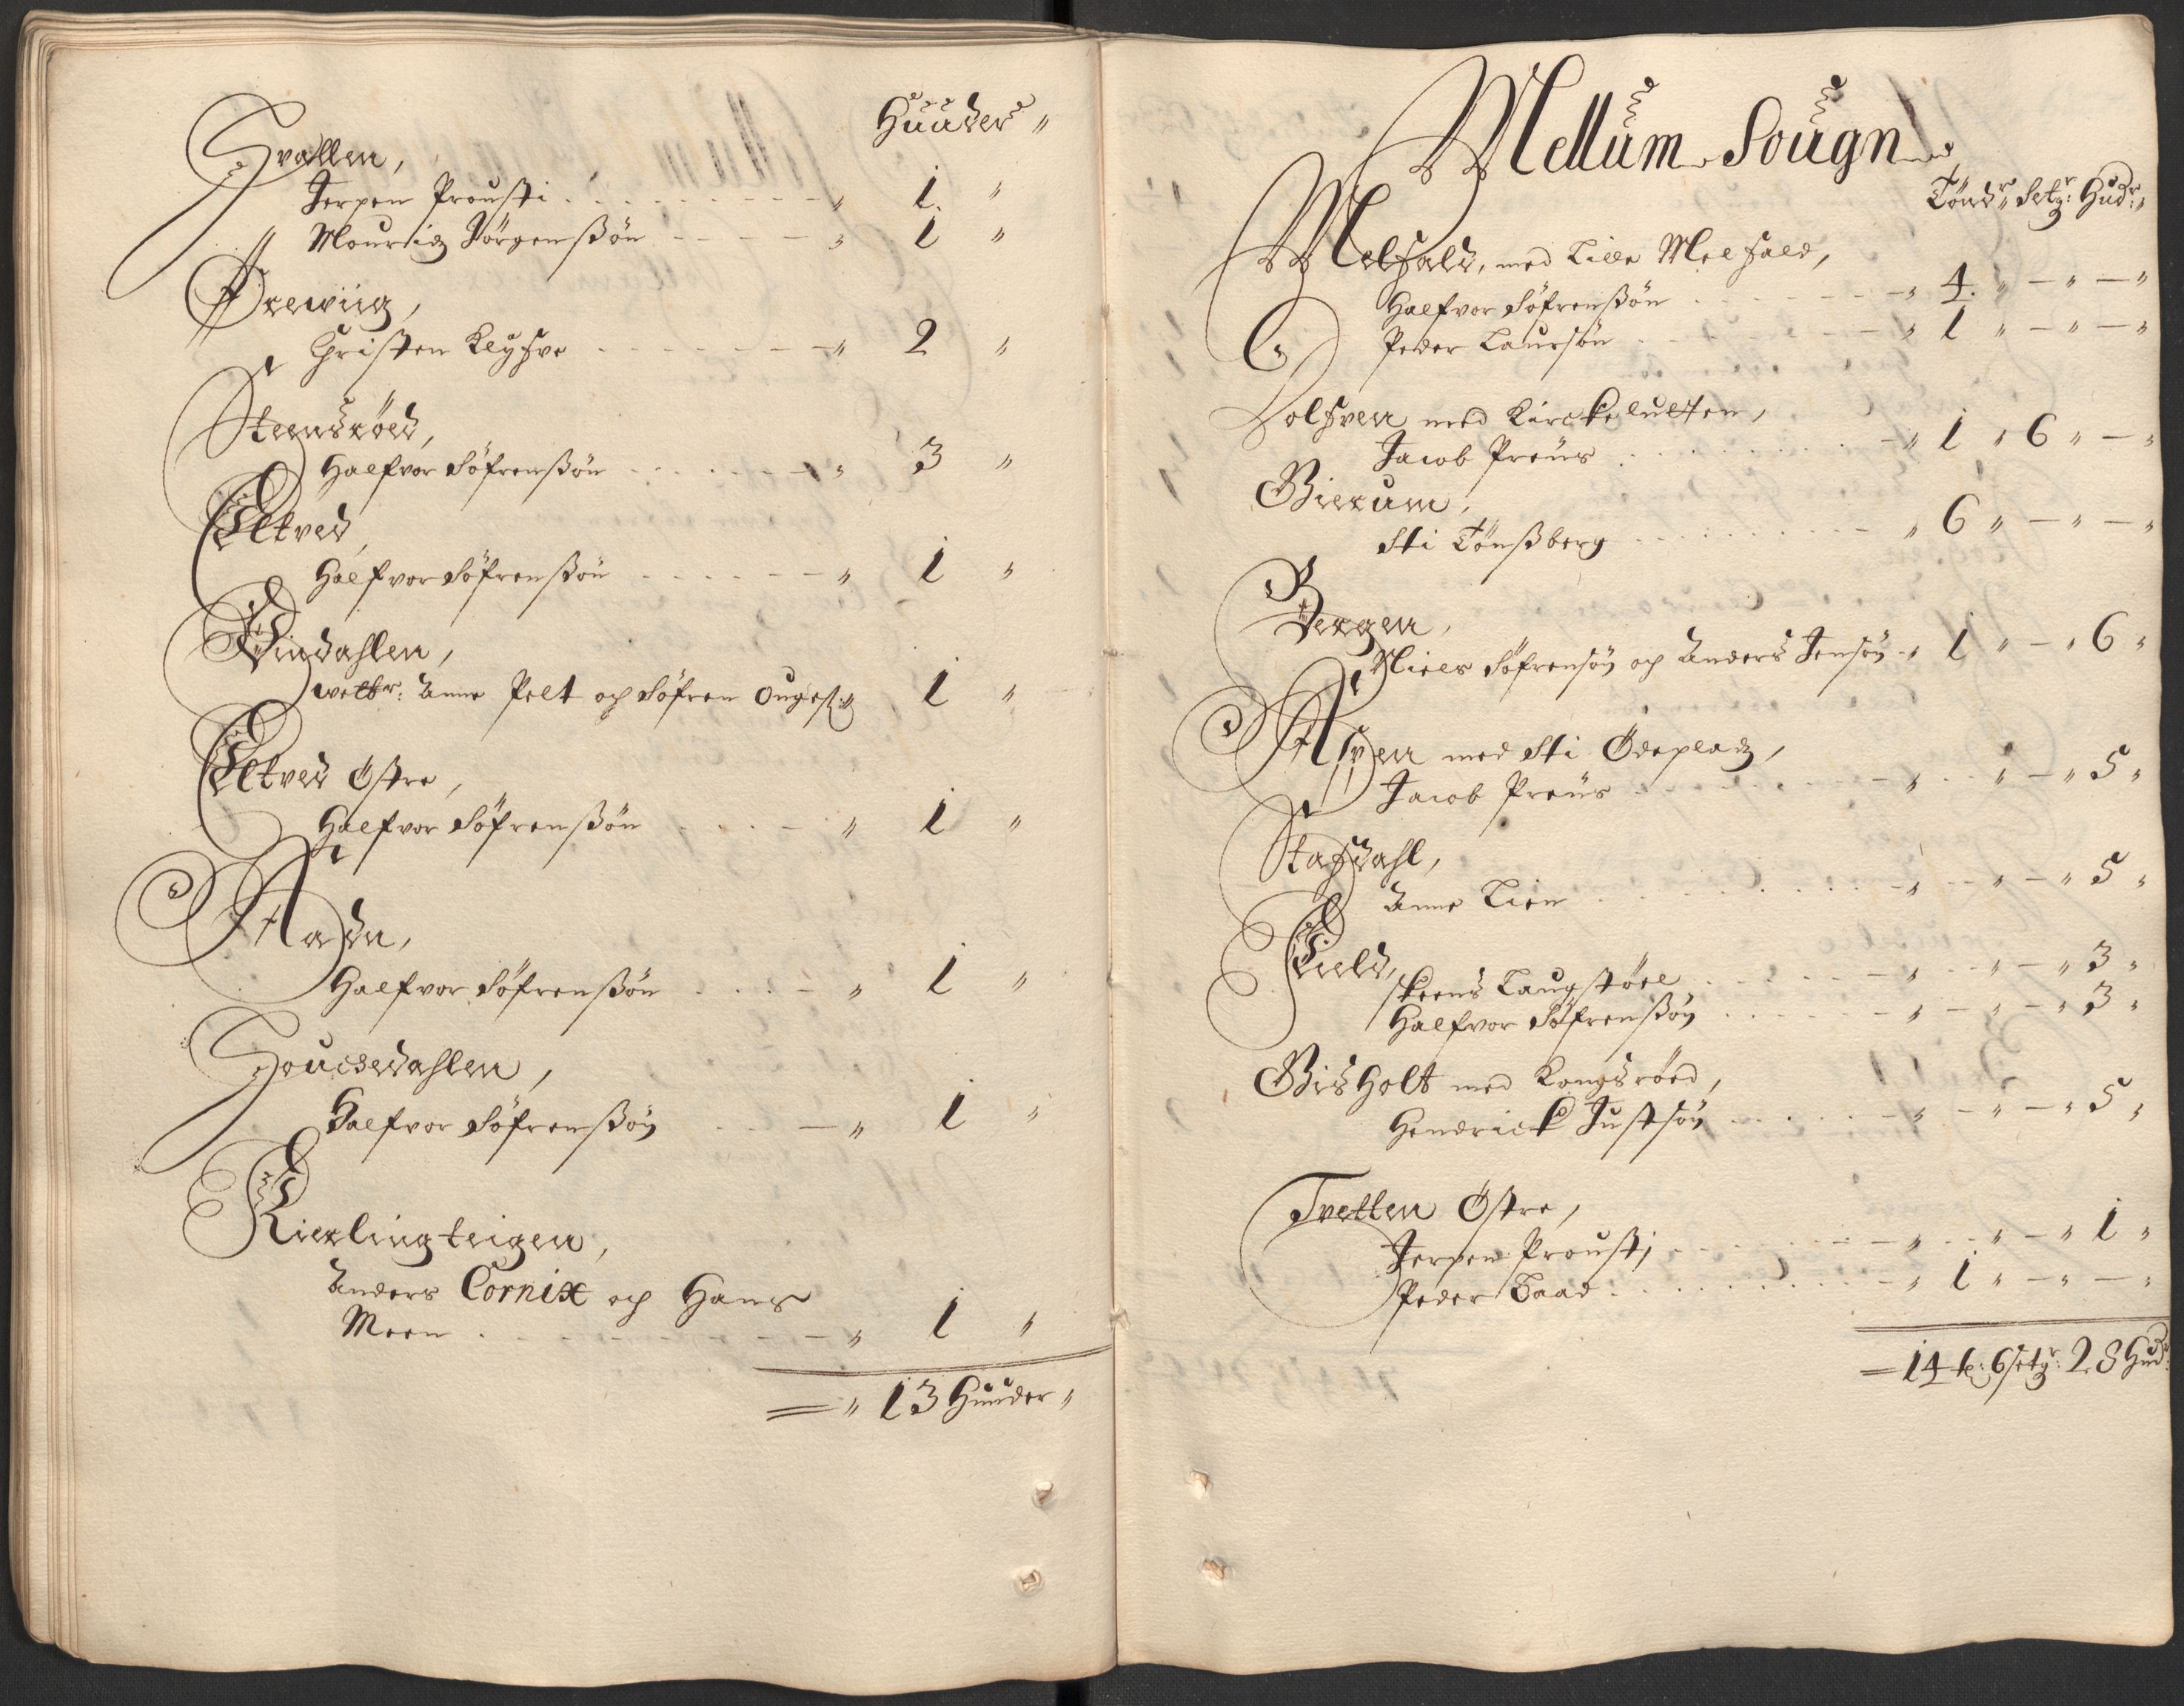 Huuder "
Hvallen,
Jergen Prousti . . . . . . . . . " 1. "
Mouridz Jörgenßön - - - - - " 1 "
Örewiig,
Christen Kleyfve - - - - - - - " 2 "
Steensröed,
Halfvor Söfrenßön . . . . . . - " 3 "
Eltved,
Halfvor Söfrenßön - - - - - - " 1 "
Windahlen,
welbr: Anne Pelt og Söfren 1 "
Eltved Östre,
Halfvor Söfrenßön . . . - " 1 "
Aasen,
Halfvor Söfrenßön . . . - " 1 "
Houcsedahlen,
Halfvor Söfrenßön . . . - " 1 "
Kierlingteigen,
Anders Cornix og Hans
Meen . - - - - - - - - - " 1 "
= " 13 Huuder "
Mellum Sougn
Töndr: Setgr: Hudr:
Melfald, med Lille Melfald,
Halfvor Söfrenßön . . . . . . - " 4. " - " - "
Peder Laursön . . - - - - - - " 1 " - " - "
Solfven med Kirckelulten,
Jacob Preus . . . . . . . . . - " 1 " 6 " - "
Bierum,
Sti Tönßberg . . . . . . . . . - " 6 " - " - "
Bergen,
Niels Söfrensön og Anders Jensön - " 1 " - " 6 "
med Sti Ödepladz,
Jacob Preus . . . . . . . . - " . . " - " 5 "
Stafdahl,
Anne Lien . . . . . . . . . - " - - " - " 5 "
Field,
Skeens Laugstöel . . . . . . - " - - " - " 3 "
Halfvor Söfrenßön . . . . . . - " - " - " 3 "
Bisholt med Kongsröed,
Hendrick Justsön . . . . . . - " - " - " 5 "
Tvetten Östre,
Jergen Prousti - - - - - - - " - - " - " 1 "
Peder Baad . . . . . . . . - " 1 " - " - "
= 14 t: 6 setgr: 28 Hudr: